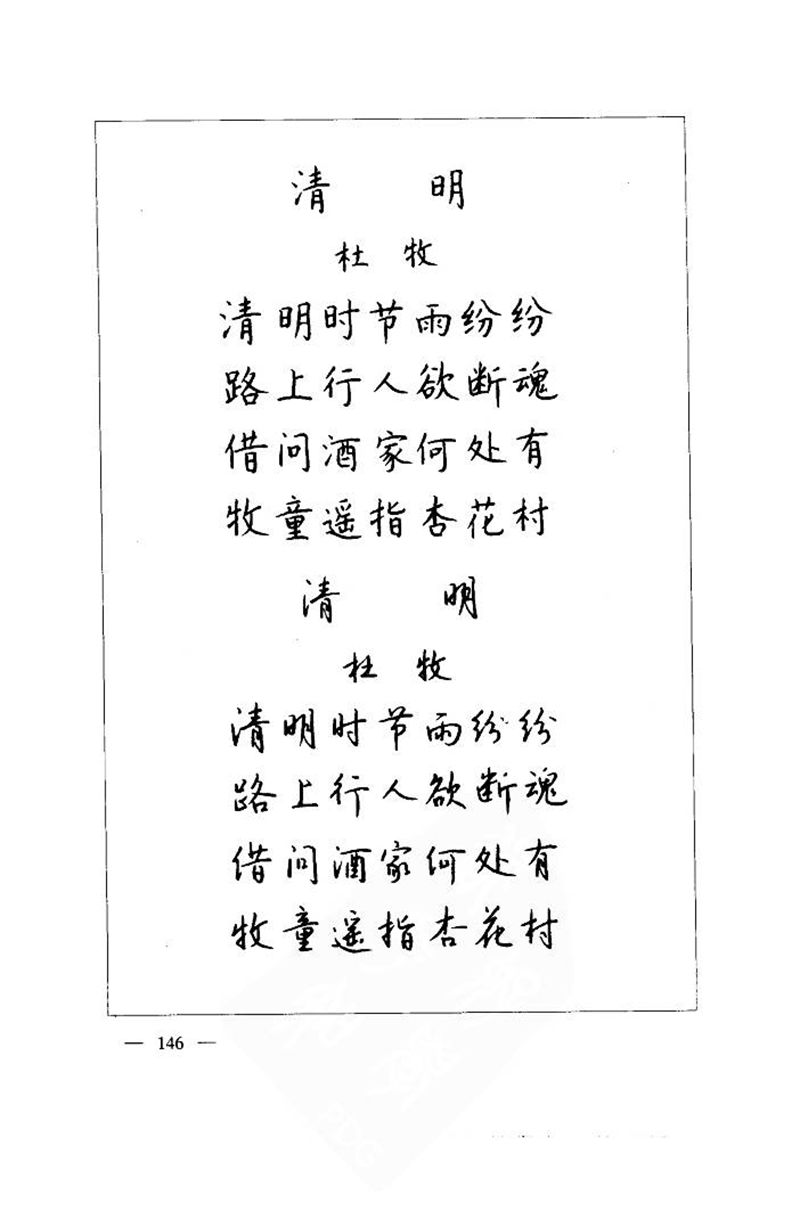 清 明
杜 牧
清明时节雨纷纷
路上行人欲断魂
借问酒家何处有
牧童遥指杏花村
清 明
杜 牧
清明时节雨纷纷
路上行人欲断魂
借问酒家何处有
牧童遥指杏花村
— 146 —
PDG